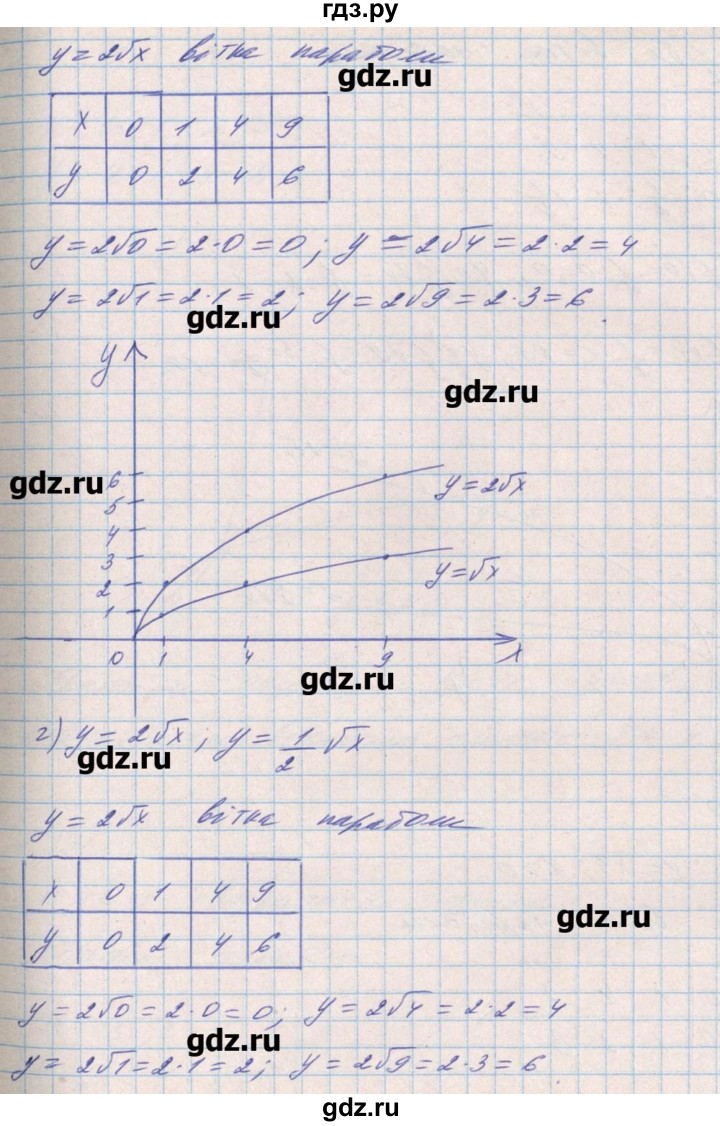 гдз.ру
y = 2√x вітка параболи
gdz.ru
x 0 1 4 9
y 0 2 4 6
y = 2√0 = 2·0 = 0; y = 2√4 = 2·2 = 4
y = 2√1 = 2·1 = 2; y = 2√9 = 2·3 = 6.
gdz.ru
y
gdz.ru
6
gdz.ru
y = 2√x
5
4
3
y = √x
2
1
0 1 4 9 x
gdz.ru
г) y = 2√x; y = 1/2 √x
gdz.ru
y = 2√x вітка параболи
x 0 1 4 9
gdz.ru
y 0 2 4 6
y = 2√0 = 2·0 = 0; y = 2√4 = 2·2 = 4
gdz.ru
y = 2√1 = 2·1 = 2; y = 2√9 = 2·3 = 6.
gdz.ru